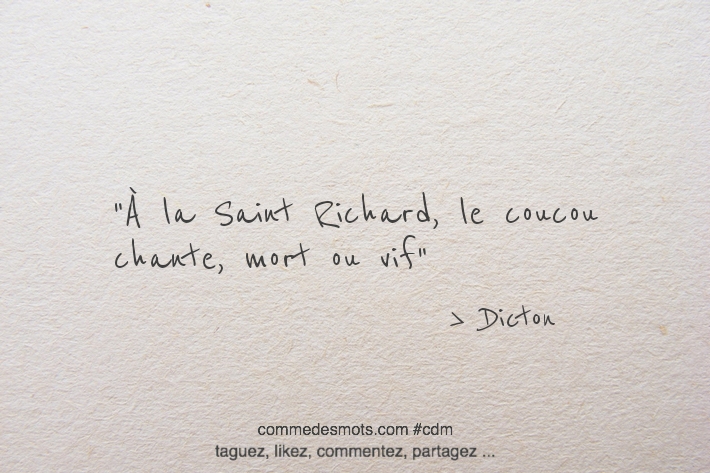 "À la Saint Richard, le coucou
chante, mort ou vif"
> Dicton
commedesmots.com #cdm
taguez, likez, commentez, partagez ...